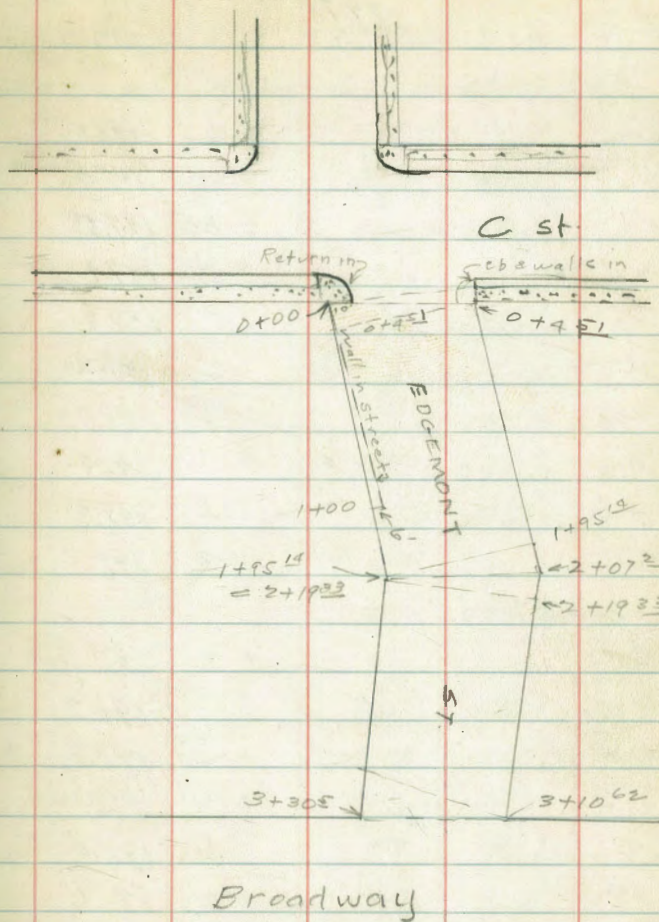 C st.
Return in
cb & walls in
0+00
0+4 51
0+4 51
wall in streets
EDGEMONT
1+00
6-
1+95 14
1+95 14
= 2+19 33
2+07 2
2+19 33
ST
3+30 5
3+10 62
Broadway